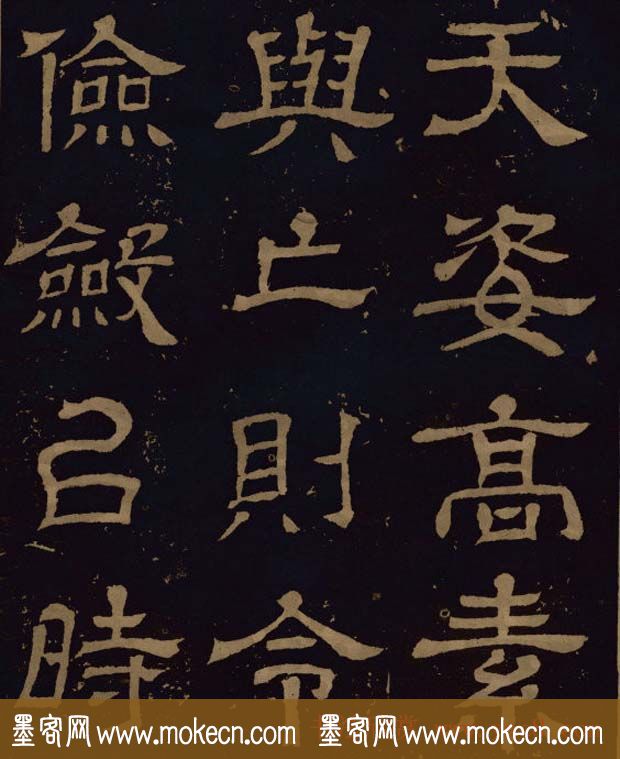 天姿高素
與亡則令
儉斂㠯時
墨客网 www.mokecn.com 墨客网 www.mokecn.com